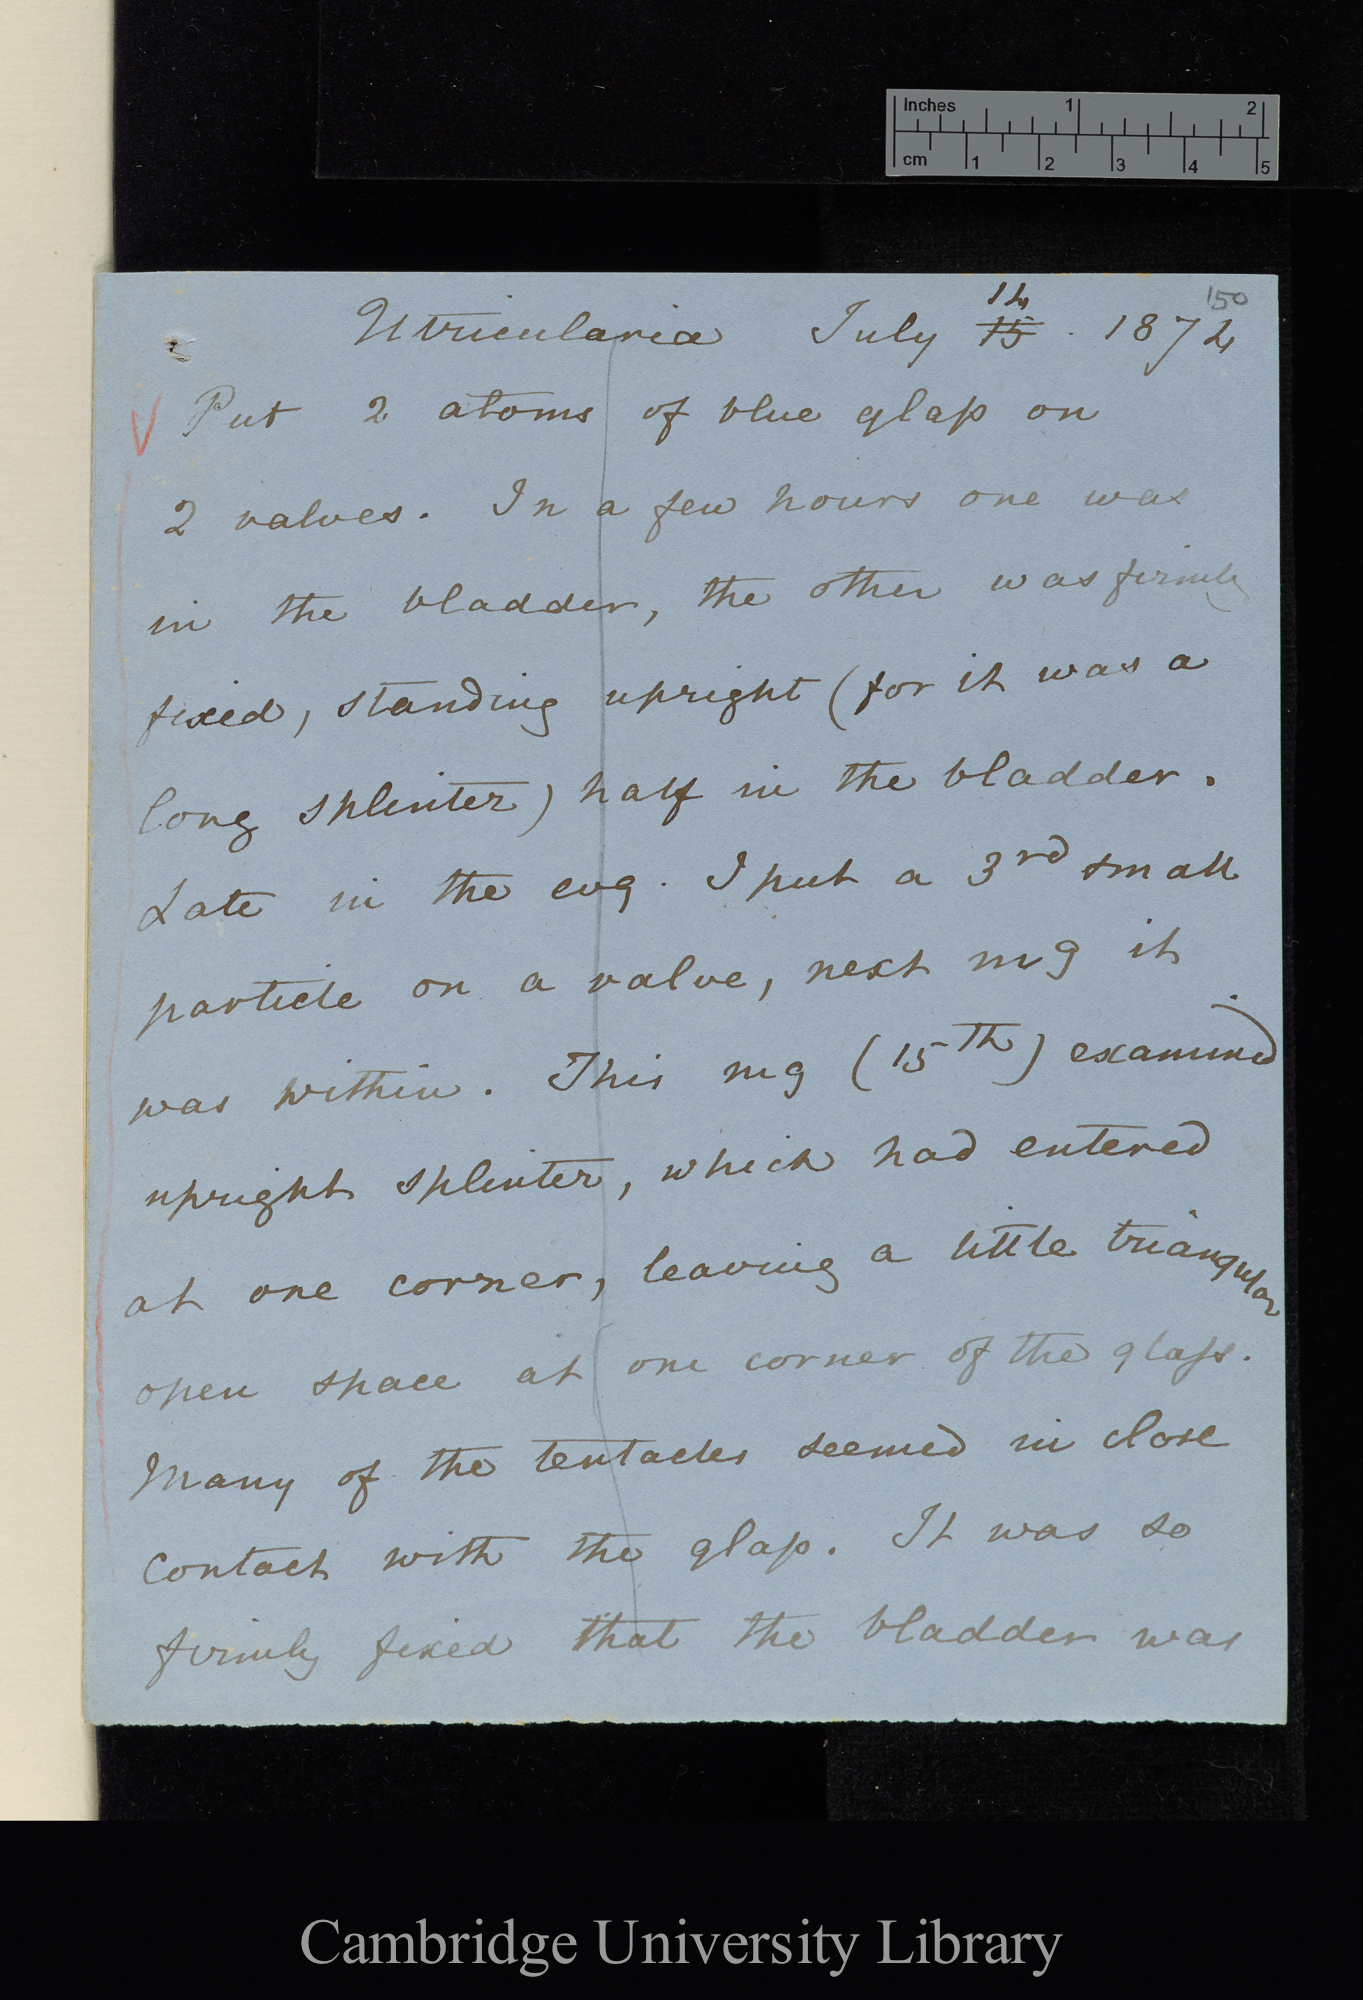 Inches 1 2
cm 1 2 3 4 5
150
14
Utricularia July 15. 1874
Put 2 atoms of blue glass on
2 valves. In a few hours one was
in the bladder, the other was firmly
fixed, standing upright (for it was a
long splinter) half in the bladder.
Late in the evg. I put a 3rd small
particle on a valve, next mg it
was within. This mg (15th) examined
upright splinter, which had entered
at one corner, leaving a little triangular
open space at one corner of the glass.
Many of the tentacles seemed in close
contact with the glass. It was so
firmly fixed that the bladder was
Cambridge University Library